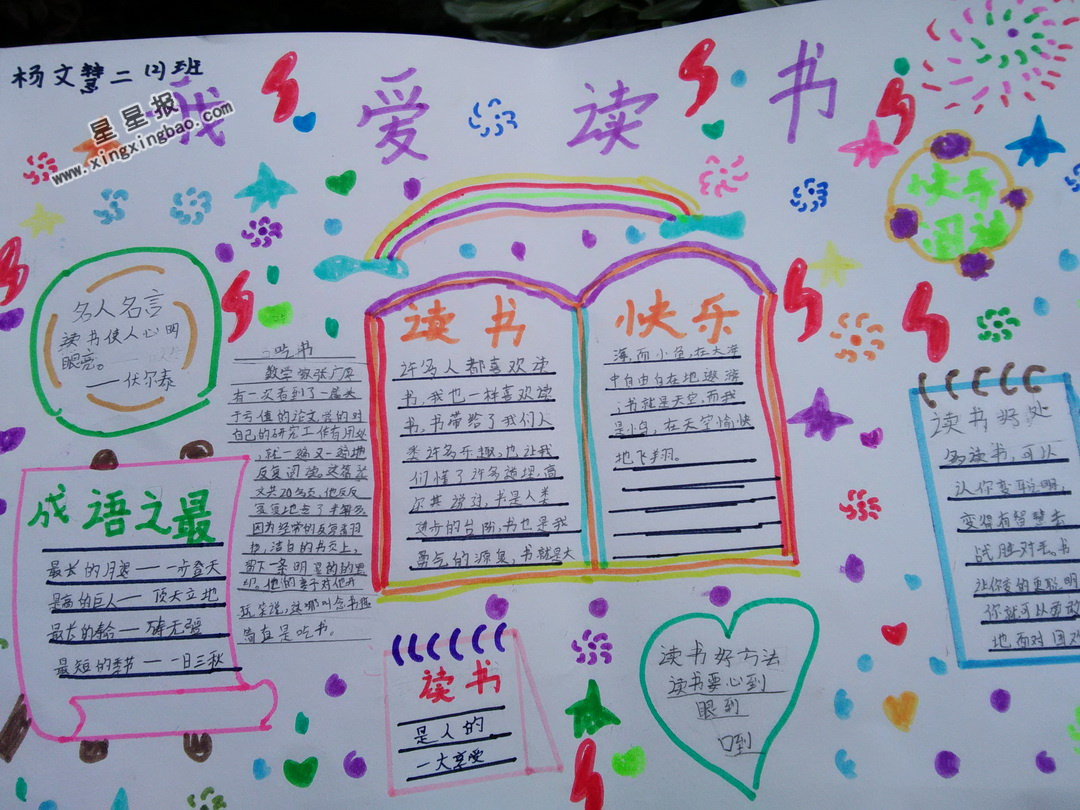 杨文慧二(2)班
星星报
www.xingxingbao.com
我爱读书
快乐
阅读
名人名言
读书使人心明
眼亮。
——伏尔泰
吃书
数学家张广厚
有一次看到了一篇关
于亏值的论文,觉的对
自己的研究工作有用处
,就一遍又一遍地
反复阅读。这篇论
文共20多页,他反反
复复地念了半年多。
因为经常的反复翻
洁白的书页上,
留下一条明显的的黑
印。他的妻子对他开
玩笑说,这哪叫念书
简直是吃书。
读书 快乐
许多人都喜欢读
书,我也一样喜欢读
书,书带给了我们人
类许多乐趣,也让我
们懂了许多道理,高
尔基说过,书是人类
进步的台阶,书也是我
勇气的源泉,书就是大
海,而小鱼,在大洋
中自由自在地遨游
;书就是天空,而我
是小鸟,在天空愉快
地飞翔。
成语之最
最长的一天
最高的巨人——顶天立地
最短的季节——一日三秋
读书
是人的
一大享受
读书好方法
读书要心到
眼到
口到
读书好处
多读书,可以
让你变聪明,
变得有智慧去
战胜对手。书
让你变的更聪明
你就可以勇敢
地面对困难